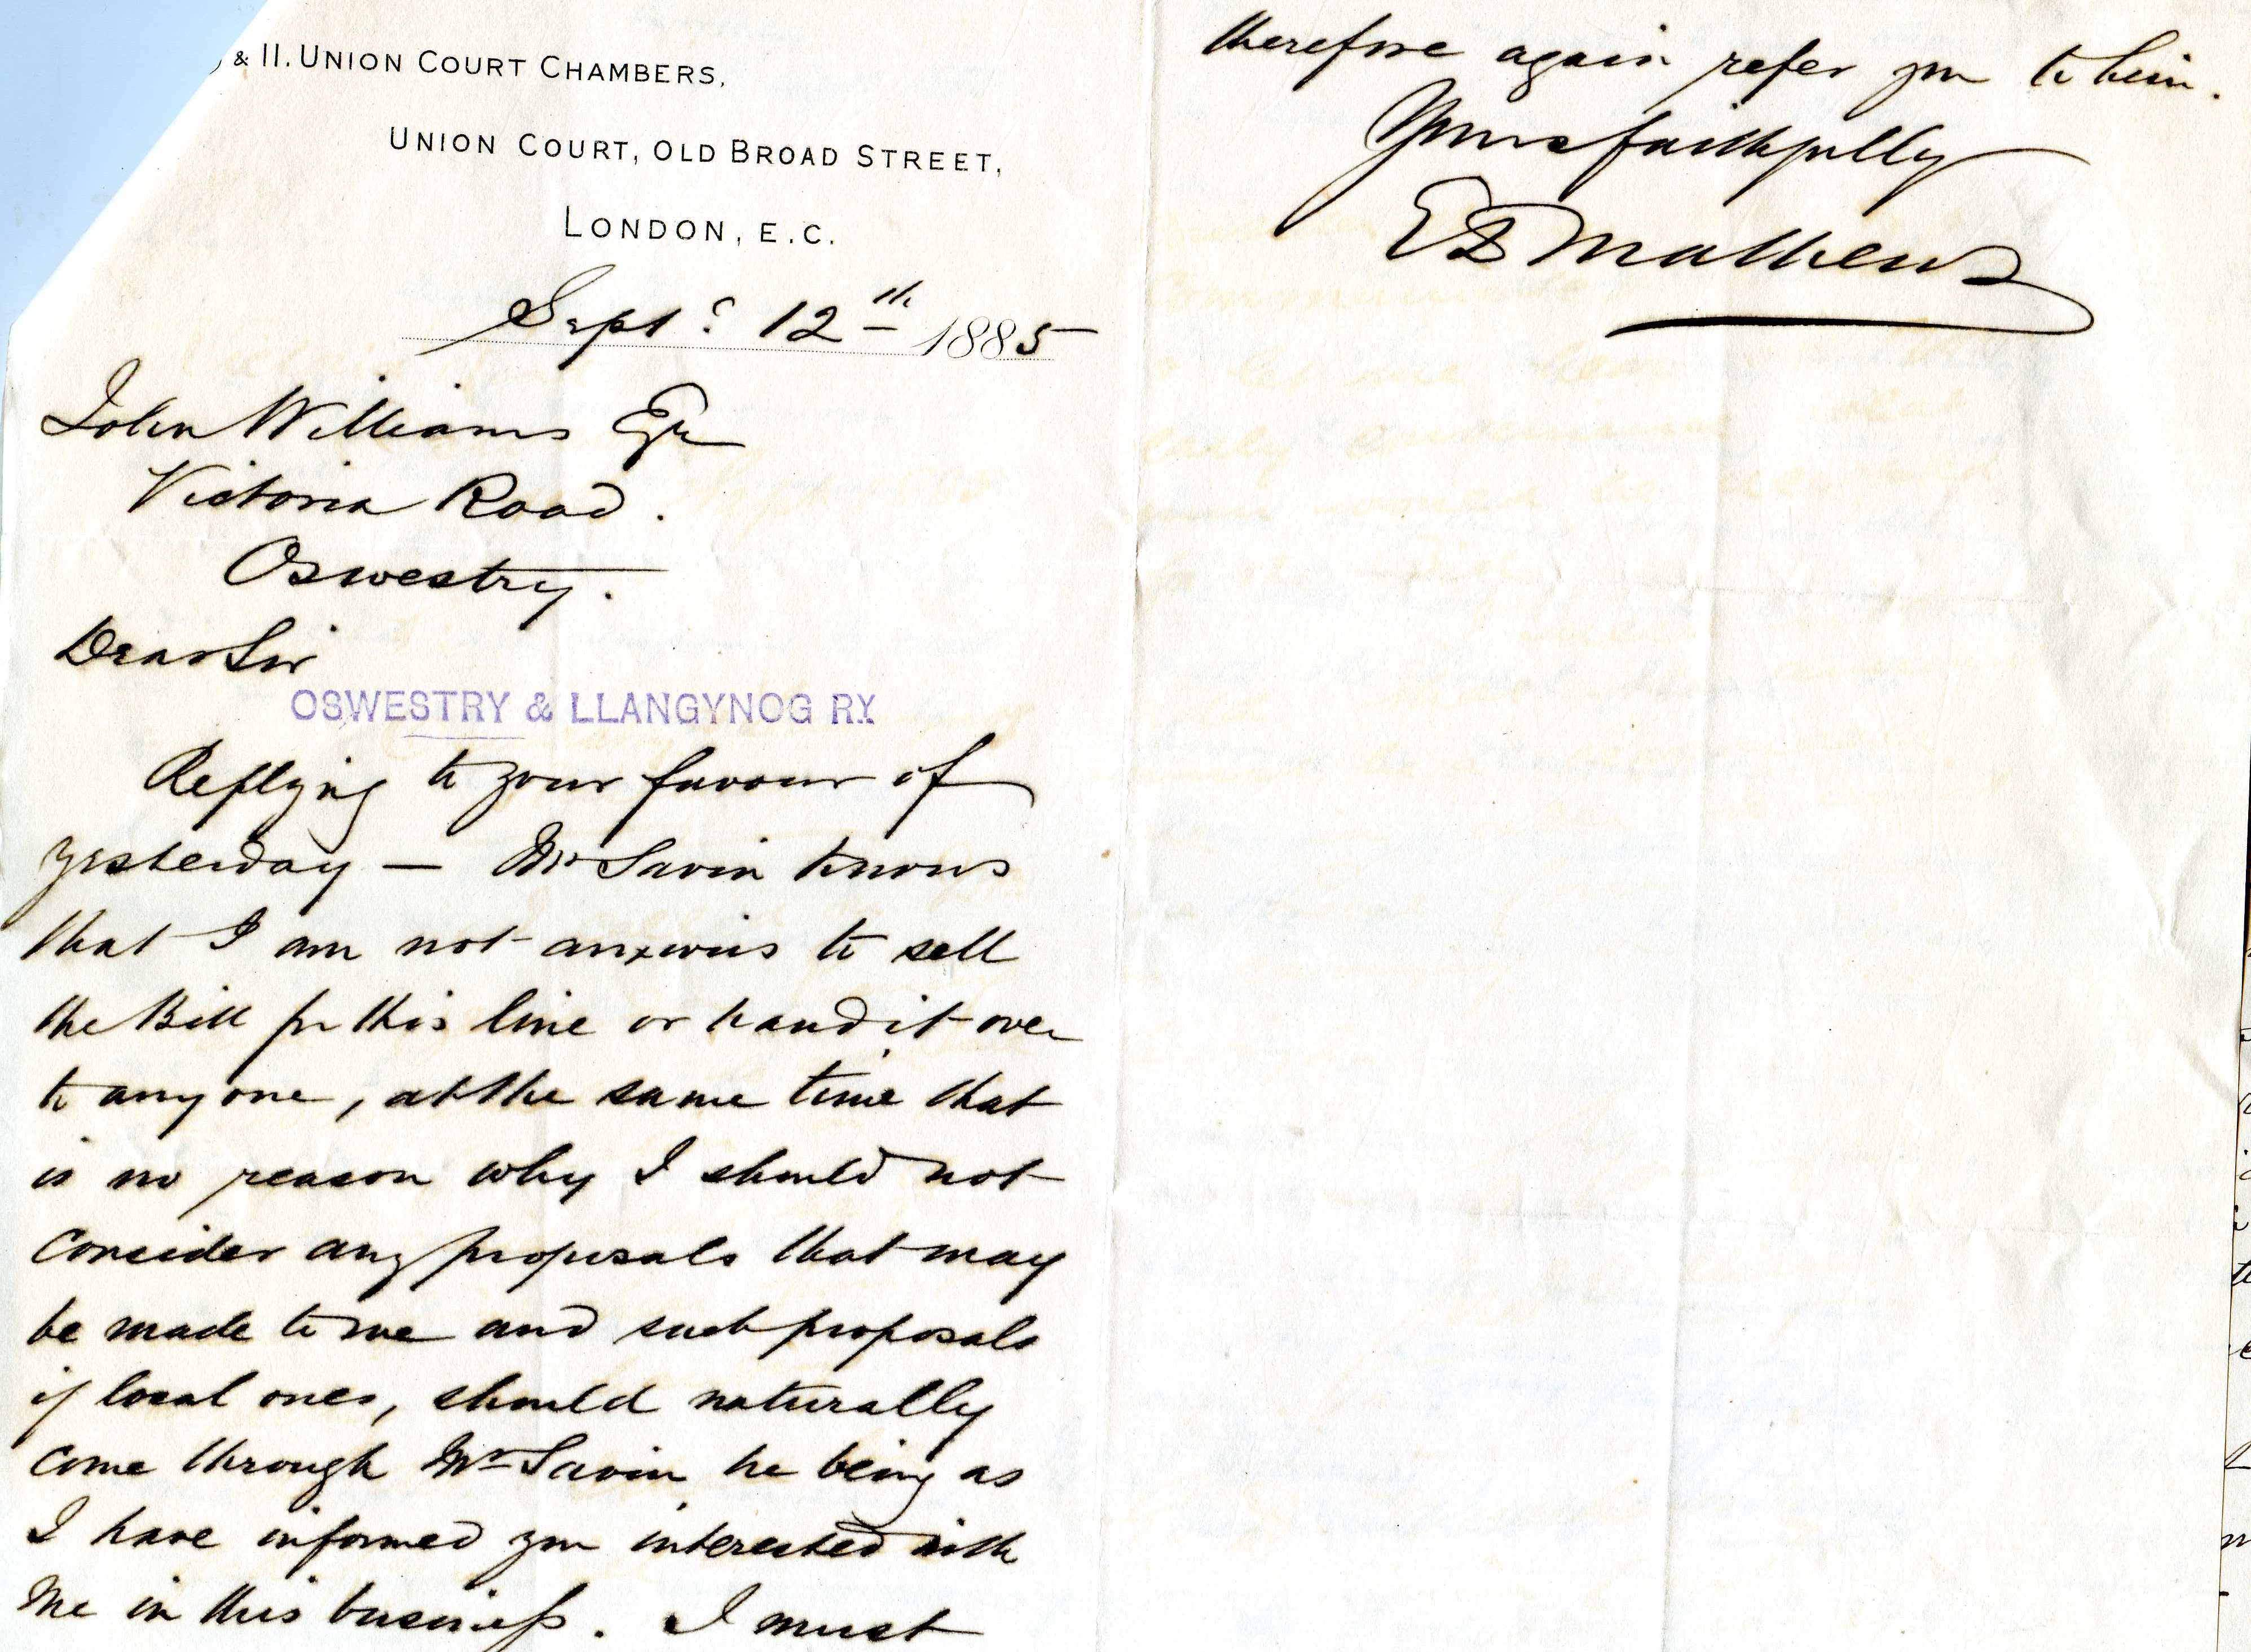 & 11. UNION COURT CHAMBERS,
UNION COURT, OLD BROAD STREET,
LONDON, E.C.
Septr. 12th 1885
John Williams Esqr
Victoria Road.
Oswestry.
Dear Sir
OSWESTRY & LLANGYNOG RY
Replying to your favour of
yesterday — Mr Savin knows
that I am not anxious to sell
the Bill for this line or hand it over
to any one, at the same time that
is no reason why I should not
consider any proposals that may
be made to me and such proposals
if local ones, should naturally
come through Mr Savin he being as
I have informed you interested with
me in this business. I must
therefore again refer you to him.
Yours faithfully
E Mathews